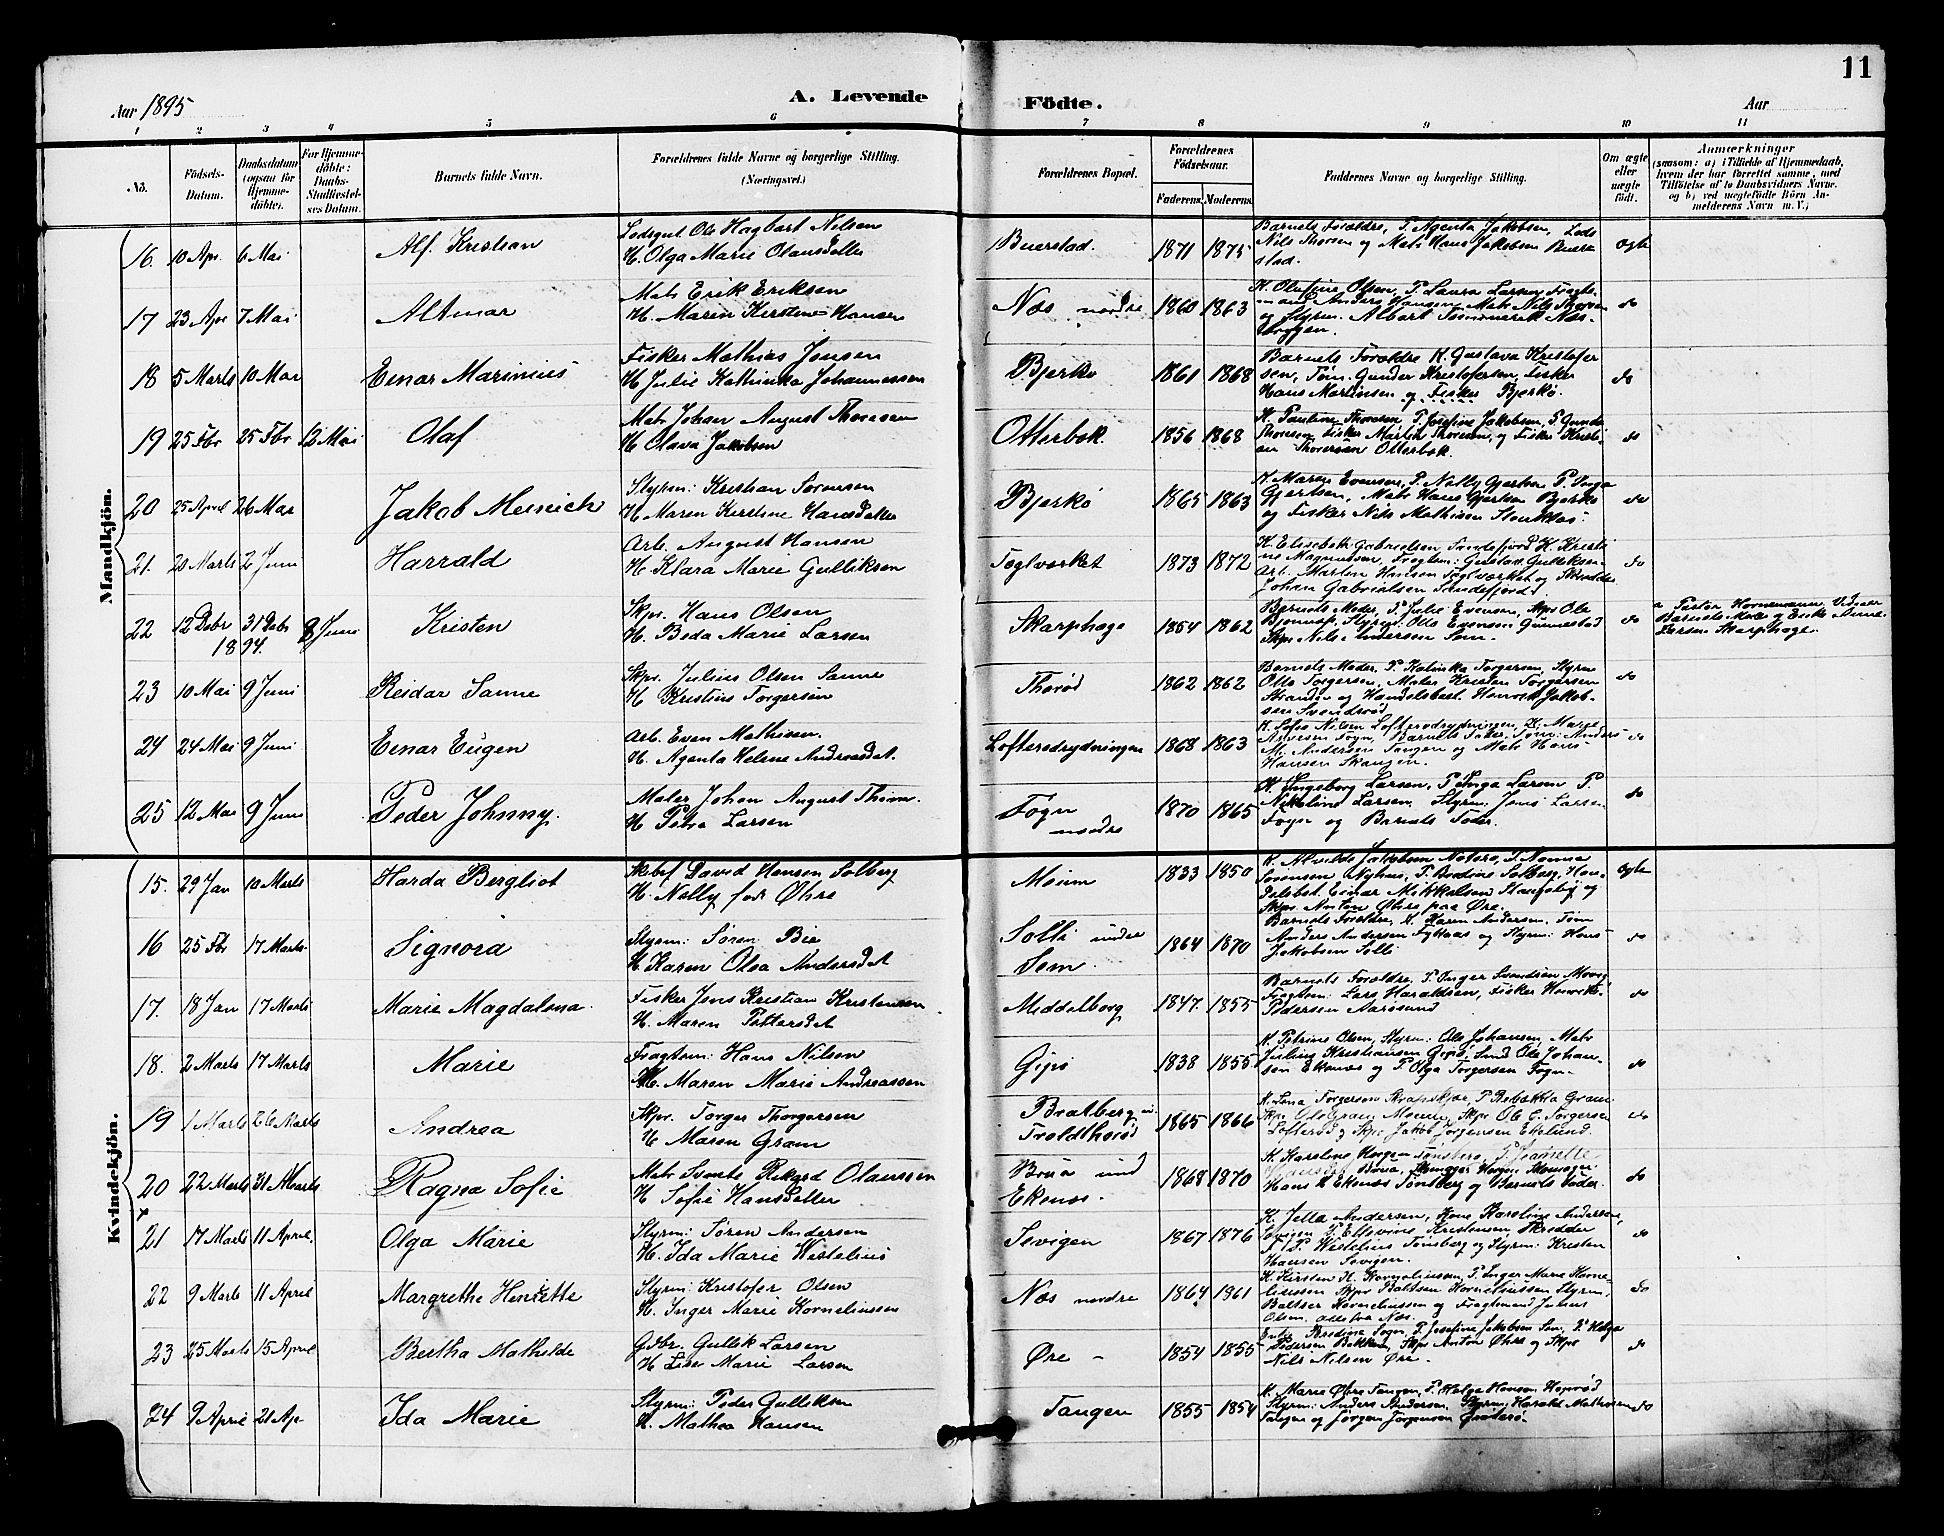 Aar 1895
A. Levende
Födte.
Aar
11
1 2 3 4 5 6 7 8 9 10 11
No.
Födsels-
Datum.
Daabsdatum
(ogsaa for
Hjemme-
döbte).
For Hjemme-
döbte:
Daabs-
Stadfæstel-
ses Datum.
Barnets fulde Navn.
Forældrenes fulde Navne og borgerlige Stilling.
(Næringsvei.)
Forældrenes Bopæl.
Forældrenes
Födselsaar.
Faderens. Moderens.
Faddernes Navne og borgerlige Stilling.
Om ægte
eller
uægte
født.
Anmærkninger
(saasom: a) i Tilfælde af Hjemmedaab,
hvem der har forrettet samme, med
Tilföielse af to Daabsvidners Navne.
og b) ved uægtefödte Börn An-
melderens Navn m. V.)
Mandkjön.
16. 10 Apr. 6 Mai Alf. Kristian
Lodsgut Ole Hagbart Nilsen
H. Olga Marie Olausdatter
Buerstad. 1871 1875
Barnets Forældre, P. Agenta Jakobsen, Lods
Nils Thorsen og Matr Hans Jakobsen Buer
stad.
Ægte
17 23 Apr 7 Mai Altmar
Matr Erik Eriksen
H. Maren Kirstine Hansen
Næs nordre 1860 1863
K. Olefine Olsen, P. Laura Larsen, Fragte-
mand Anders Hansen, Matr Nils
og Styrm. Albert
do
18 5 Marts 10 Mai Einar Marinius
Fisker Mathias Jensen
H Julie Kathinka Johannessen
Bjerkø 1861 1868
Barnets Forældre K. Gustava Kristofer
sen, Tøm. Gunder Kristofersen, Fisker
Hans Martinsen og Fisker Bjerkø.
do
19 25 Fbr 25 Fbr 12 Mai Olaf
Matr Johan August Thoresen
H Olava Jakobsen
Otterbæk. 1856 1868
K. Pauline Thoresen P. Josefine Jakobsen, P. Gunda
Thoresen Fisker Martin Thoresen, og Fisker Kristi-
an Thoresen Otterbæk.
do
20 25 April 26 Mai Jakob Meinich
Styrm: Kristian Sørensen
H Maren Kirstine Hansdatter
Bjerkø 1865 1863
K Maren Evensen, P. Nelly Gjertsen P. Inga
Gjertsen, Matr Hans Gjertsen Bjerkø
og Fisker Nils Mathisen
do
21. 20 Marts 2 Juni Harrald
Arb. August Hansen
H Klara Marie Gulliksen
Teglværket 1873 1872
K. Elisabet Gabrielsen Sandefjord K. Kristi
ne Magnussen, Fragtem: Gustav Gulliksen
Arb. Martin Hansen Teglværket og Skrædder
Johan Gabrielsen Sandefjord
do
22 12 Debr 31 Debr 8 Juni Kristen
1894.
Skpr. Hans Olsen
H. Beda Marie Larsen
Skarphage 1854 1862
Barnets Moder, P. Julie Evensen, Skpr Ole
Styrm. Otto Evensen Gunnestad
Skpr Nils Andersen Sem.
do
a Pastor Hornemann Vidner
Barnets Moder og Enke Anne
Larsen Skarphage.
23 10 Mai 9 Juni Reidar Sanne
Skpr. Julius Olsen Sanne
H Kristine Torgersen
Thorød 1862 1862
Barnets Moder, P. Kalinka Torgersen, Styrm
Otto Torgersen, Matr Kristen Torgersen
Stranden og Handelsbest. Henrik Jakob-
sen
do
24 24 Mai 9 Juni Einar Eugen
Arb. Even Mathisen.
H. Agenta Helene Andreasdat.
Lofterødrydningen 1868 1863
K. Sofie Nilsen Lofterødrydningen, K. Maren
Barnets Fader, Tøm: Anders
M. Andersen Tangen og Matr Hans
Hansen Skangen.
do
25 12 Mai 9 Juni Peder Johnny.
Maler Johan August Thim.
H Petra Larsen
Føgn nordre 1870 1865
K. Ingeborg Larsen, P Inga Larsen P.
Nikoline Larsen, Styrm: Jens Larsen
Føgn og Barnets Fader.
do
Kvindekjön.
15. 29 Jan 10 Marts Harda Bergliot
Skibsf David Hansen Solberg
H. Nelly født Øhre
Moium 1833 1850
K. Alvilde Jakobsen Notero, P. Nanna
Sørensen Nyhus, P. Bredine Solberg, Han-
delsbst. Einar Mikkelsen og
Skpr. Anton Øhre paa Øre.
Ægte
16 25 Fbr 17 Marts Signora
Styrm: Søren Bie
H. Karen Olea Andersdat
Solli under Sem. 1864 1870
Barnets Forældre, K. Karen Andersen. Tøm
Anders Andersen og Styrm: Hans
Jakobsen Solli
do
17. 18 Jan 17 Marts Marie Magdalena.
Fisker Jens Kristian Kristensen
H. Maren Pettersdat
Middelborg 1847 1855
Barnets Forældre, P. Inger Svendsen
Fragtem: Lars Haraldsen, Fisker Henrik
Pedersen Aarøsund
do
18. 2 Marts 17 Marts Marie
Fragtem: Hans Nilsen
H. Maren Marie Andreassen
Gipø 1838 1855
K. Petrine Olsen, Styrm: Ole Johansen, Matr
Julius Kristiansen Gipø, Smed Ole Johan-
sen Ekenæs og P. Olga Torgersen Føgn.
do
19 1 Marts 26 Marts Andrea
Skpr. Torger Thorgersen
H Maren Gram
Bratberg u. Troldthorød 1865 1866
K. Lina Torgersen P Rebekka Gram
Skpr Ole Gram Moium, Skpr Ole C. Torgersen
Lofterød og Skpr Jakob Jørgensen Ekelund.
do
20 22 Marts 31 Marts Ragna Sofie
Matr Svente Rikard Olaussen
H Sofie Hansdatter
Brua und Ekenæs. 1868 1870
K Karoline Horgen Tønsberg, P
Brua, Horgen
Hans K Ekenæs Tønsberg og Barnets Fader.
do
x
21 17 Marts 11 April. Olga Marie
Styrm: Søren Andersen
H. Ida Marie Wistelius
Sevigen 1867 1876
K. Jella Andersen, Kone Karoline Andersen,
Sevigen P Ellevine Kristensen Skrædder
F. P. Wistelius Tønsberg og Styrm: Kristen
Hansen Sevigen.
do
22 9 Marts 11 April Margrethe Henriette
Styrm: Kristofer Olsen
H. Inger Marie Korneliussen
Næs nordre 1864 1861
K. Kirsten H. Korneliussen, P. Inger Marie Korne-
liussen Skpr Baltsen Korneliussen Styrm,
Baltser Korneliussen og Fragtmand Julius
Olsen. alle fra Næs.
do
23 25 Marts 15 April Bertha Mathilde
Gdbr. Gullik Larsen
H Lise Marie Larsen
Øre - 1854 1855
Enke Bredine Føgn, P. Josefine Jakobsen Sen, P. Helga
Pedersen Bakken, Skpr Anton Øhre og Skpr
Nils Nilsen Øre.
do
24 9 April 21 Ap Ida Marie
Styrm: Peder Gulliksen
H. Mathea Hansen
Tangen 1855 1854
K. Marie Øhre Tangen, P. Helga Hansen
Styrm: Anders Andersen, Styrm: Harald Mathisen
Tangen og Jørgen Jørgensen
do